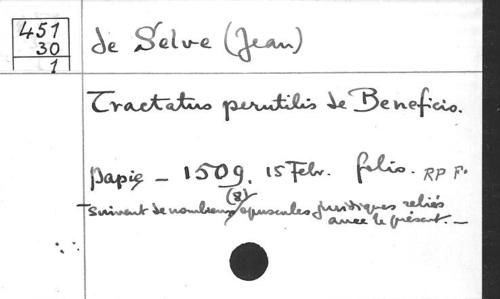 451
30
1
de Selve (Jean)
Tractatus perutilis de Beneficio.
Papie - 1509. 15 Febr. folio. RP F.
(8)
Suivent de nombreux opuscules juridiques reliés
avec le présent. -